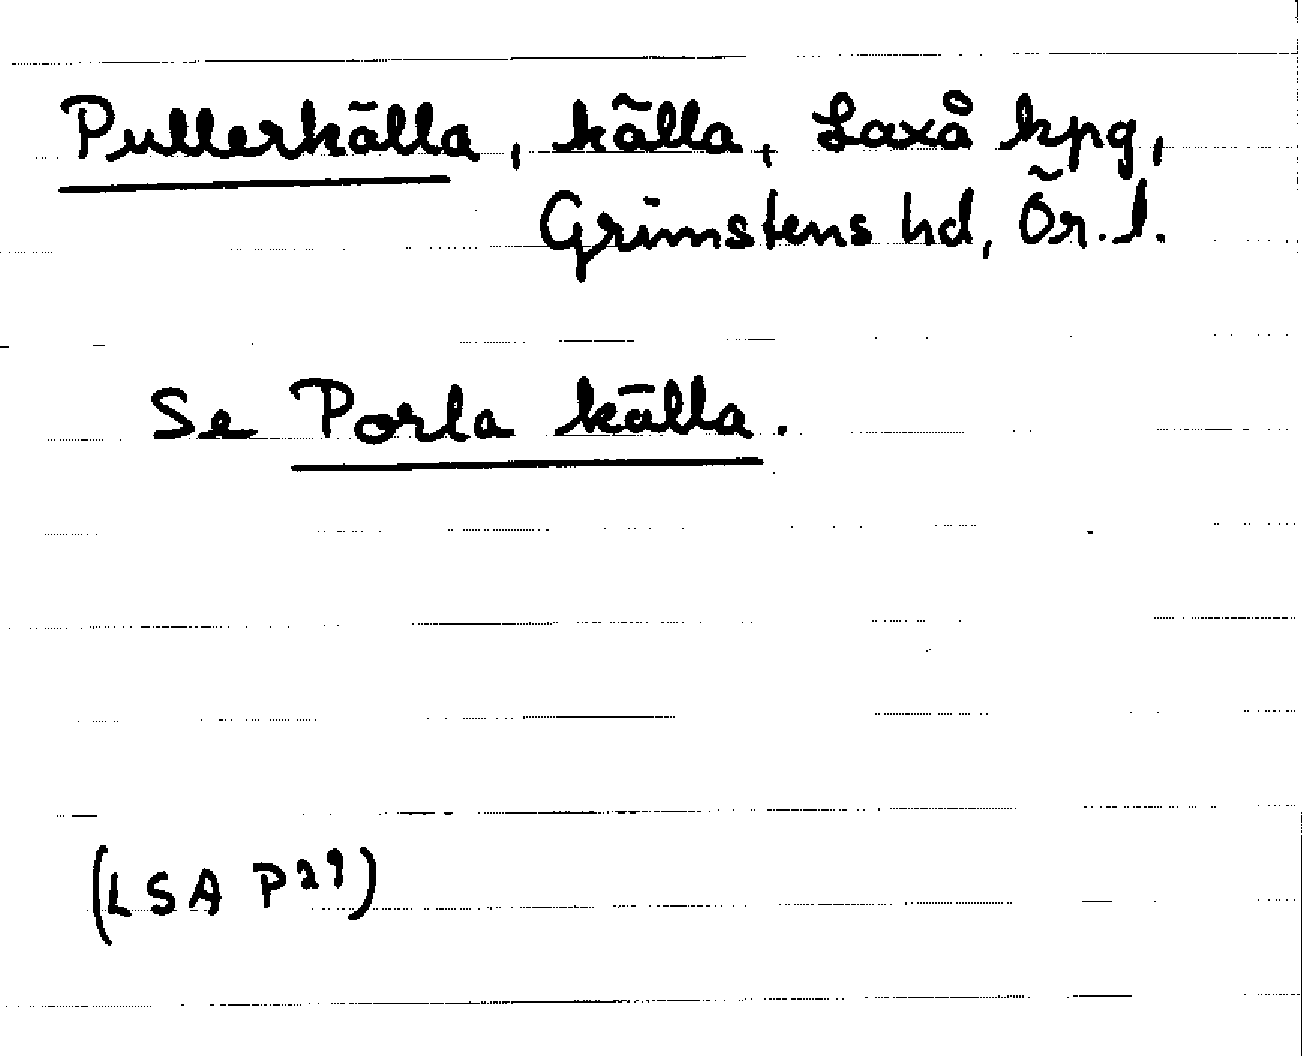 Pullerkälla, källa, Laxå kpg,
Grimstens hd, Ör. l.
Se Porla källa.
(LSA P29)